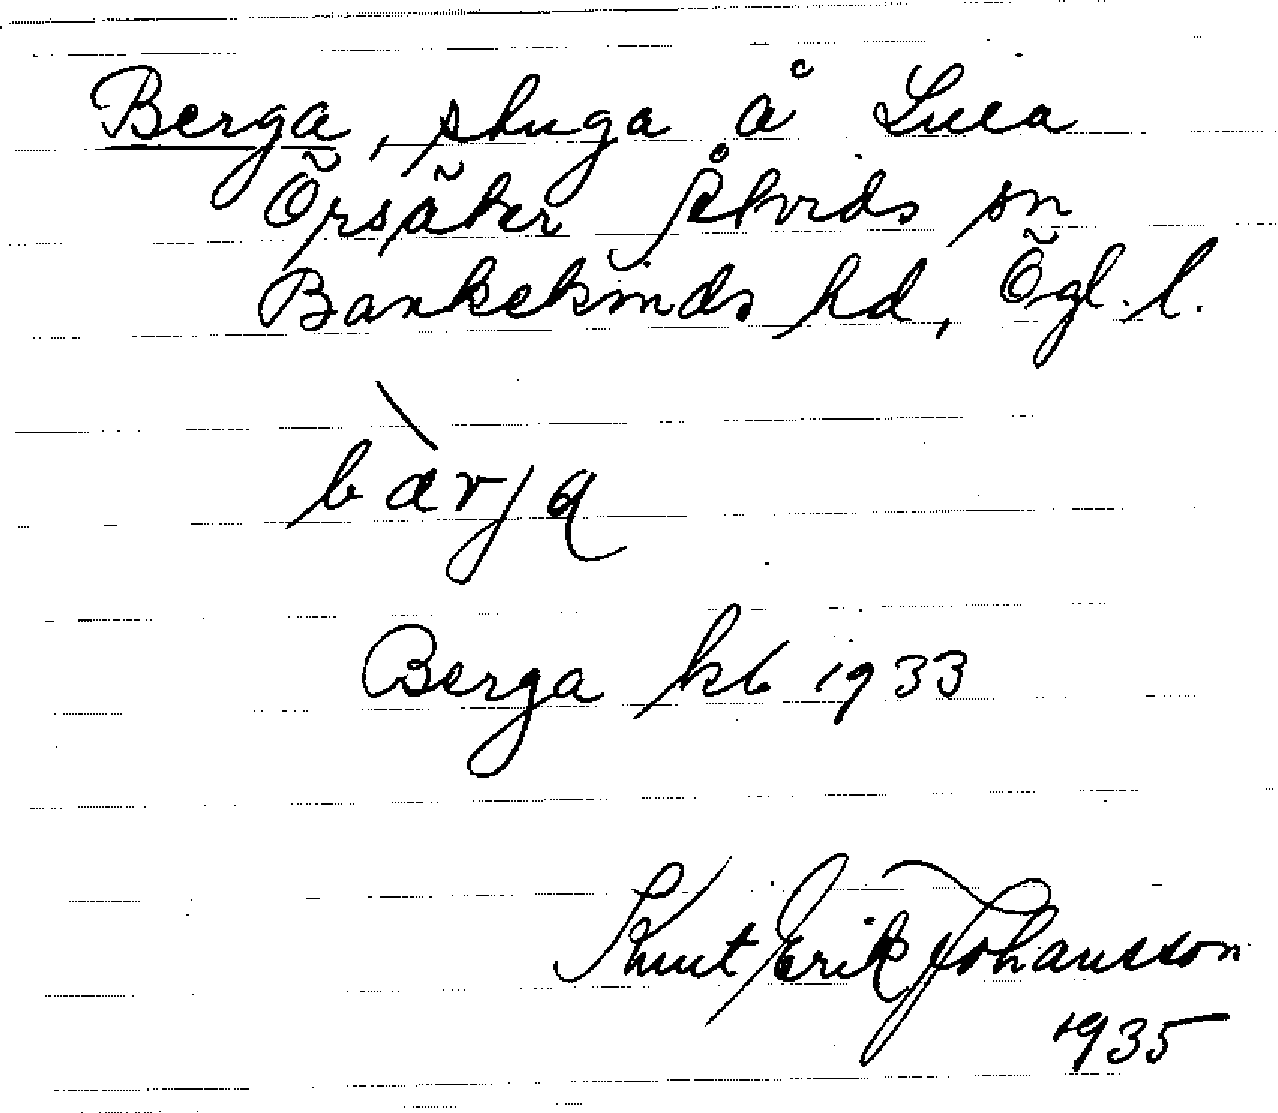 Berga, stuga å Lilla
Örsäter Åtvids sn
Bankekinds hd, Ögl. l.
bàrja
Berga kb 1933
Knut Erik Johansson
1935